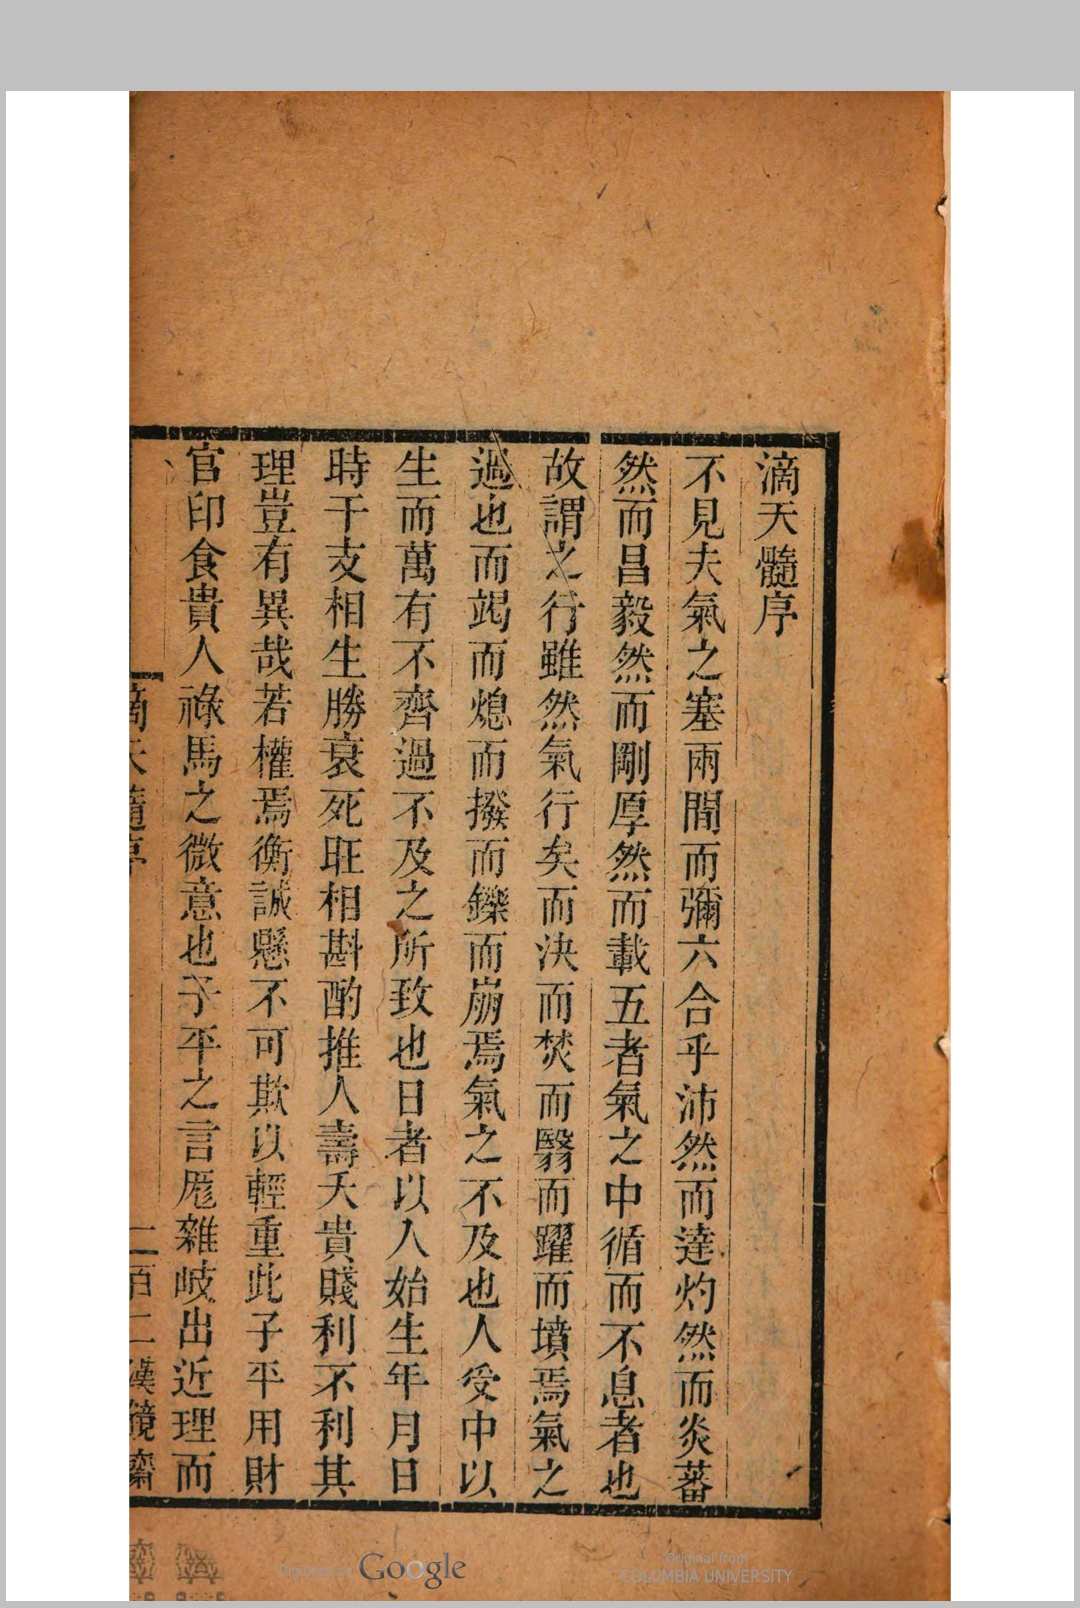 滴天髓序
不見夫氣之塞兩間而彌六合乎沛然而達灼然而炎蕃
然而昌毅然而剛厚然而載五者氣之中循而不息者也
故謂之行雖然氣行矣而決而焚而翳而躍而墳焉氣之
過也而竭而熄而撥而鑠而崩焉氣之不及也人受中以
生而萬有不齊過不及之所致也日者以人始生年月日
時干支相生勝衰死旺相斟酌推人壽夭貴賤利不利其
理豈有異哉若權焉衡誠懸不可欺以輕重此子平用財
官印食貴人祿馬之微意也子平之言厖雜岐出近理而
滴天髓序
二百二漢鏡齋
Google
Original from
COLUMBIA UNIVERSITY